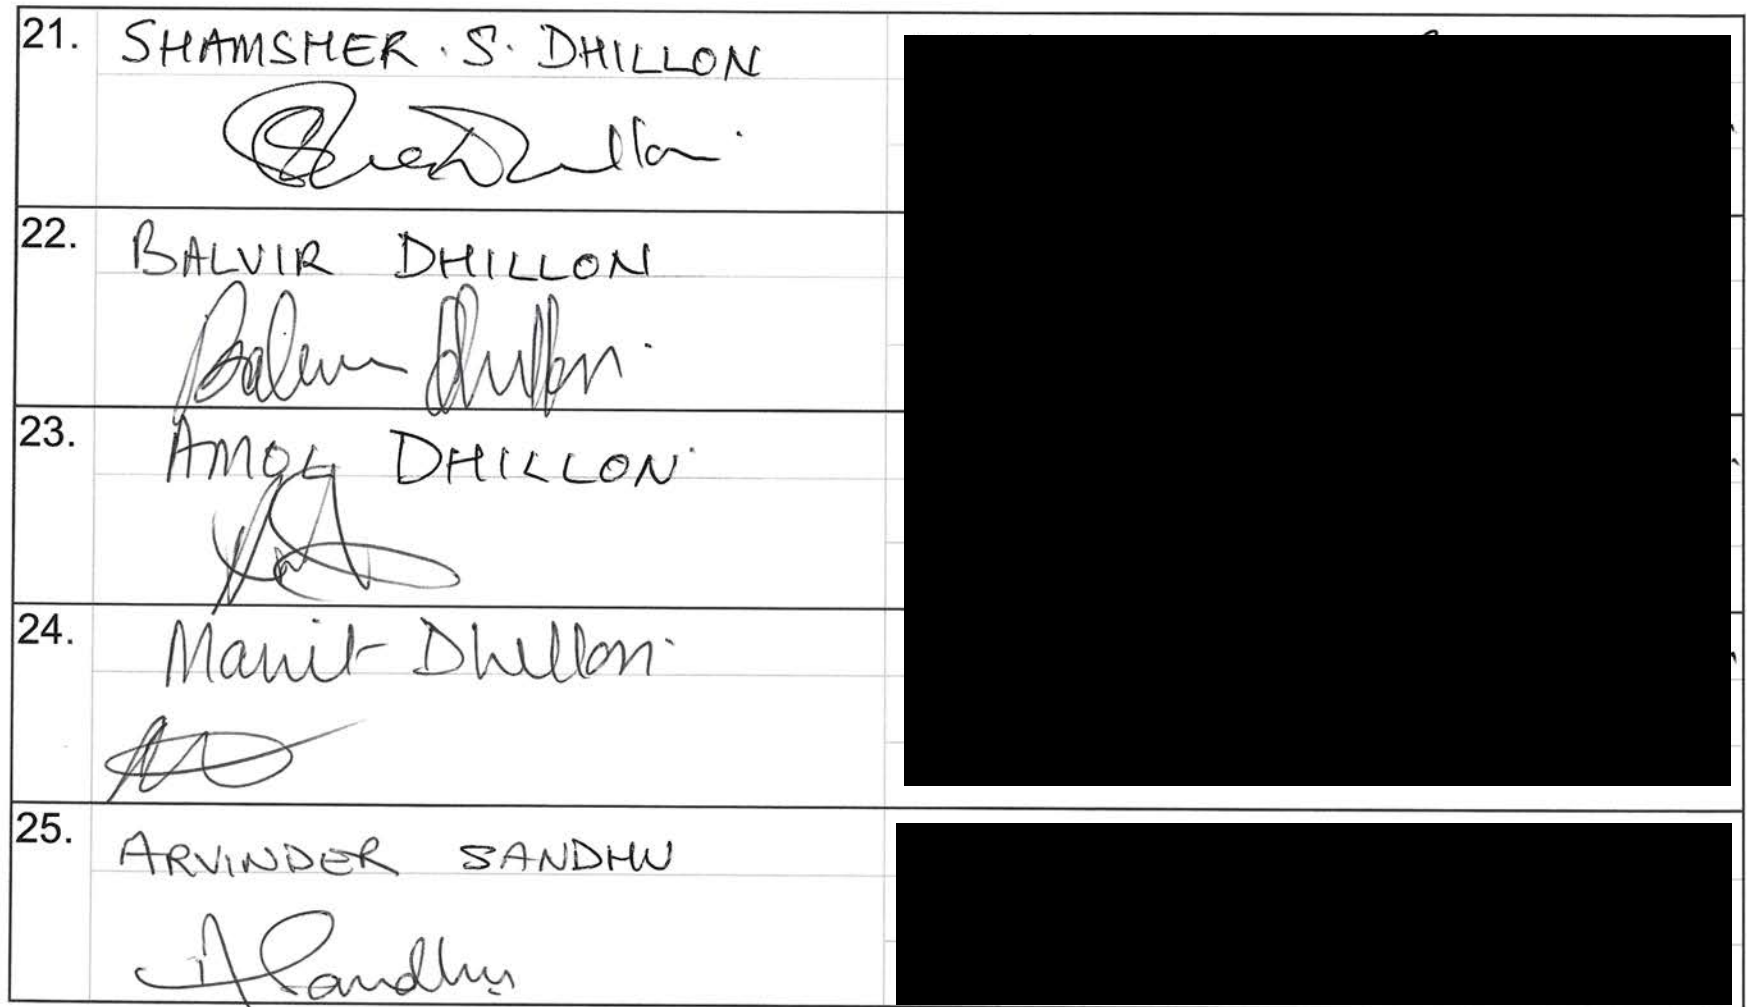 21. SHAMSHER . S. DHILLON
22. BALVIR DHILLON
23. AMOL DHILLON
24. Manit Dhillon
25. ARVINDER SANDHU
A Sandhu